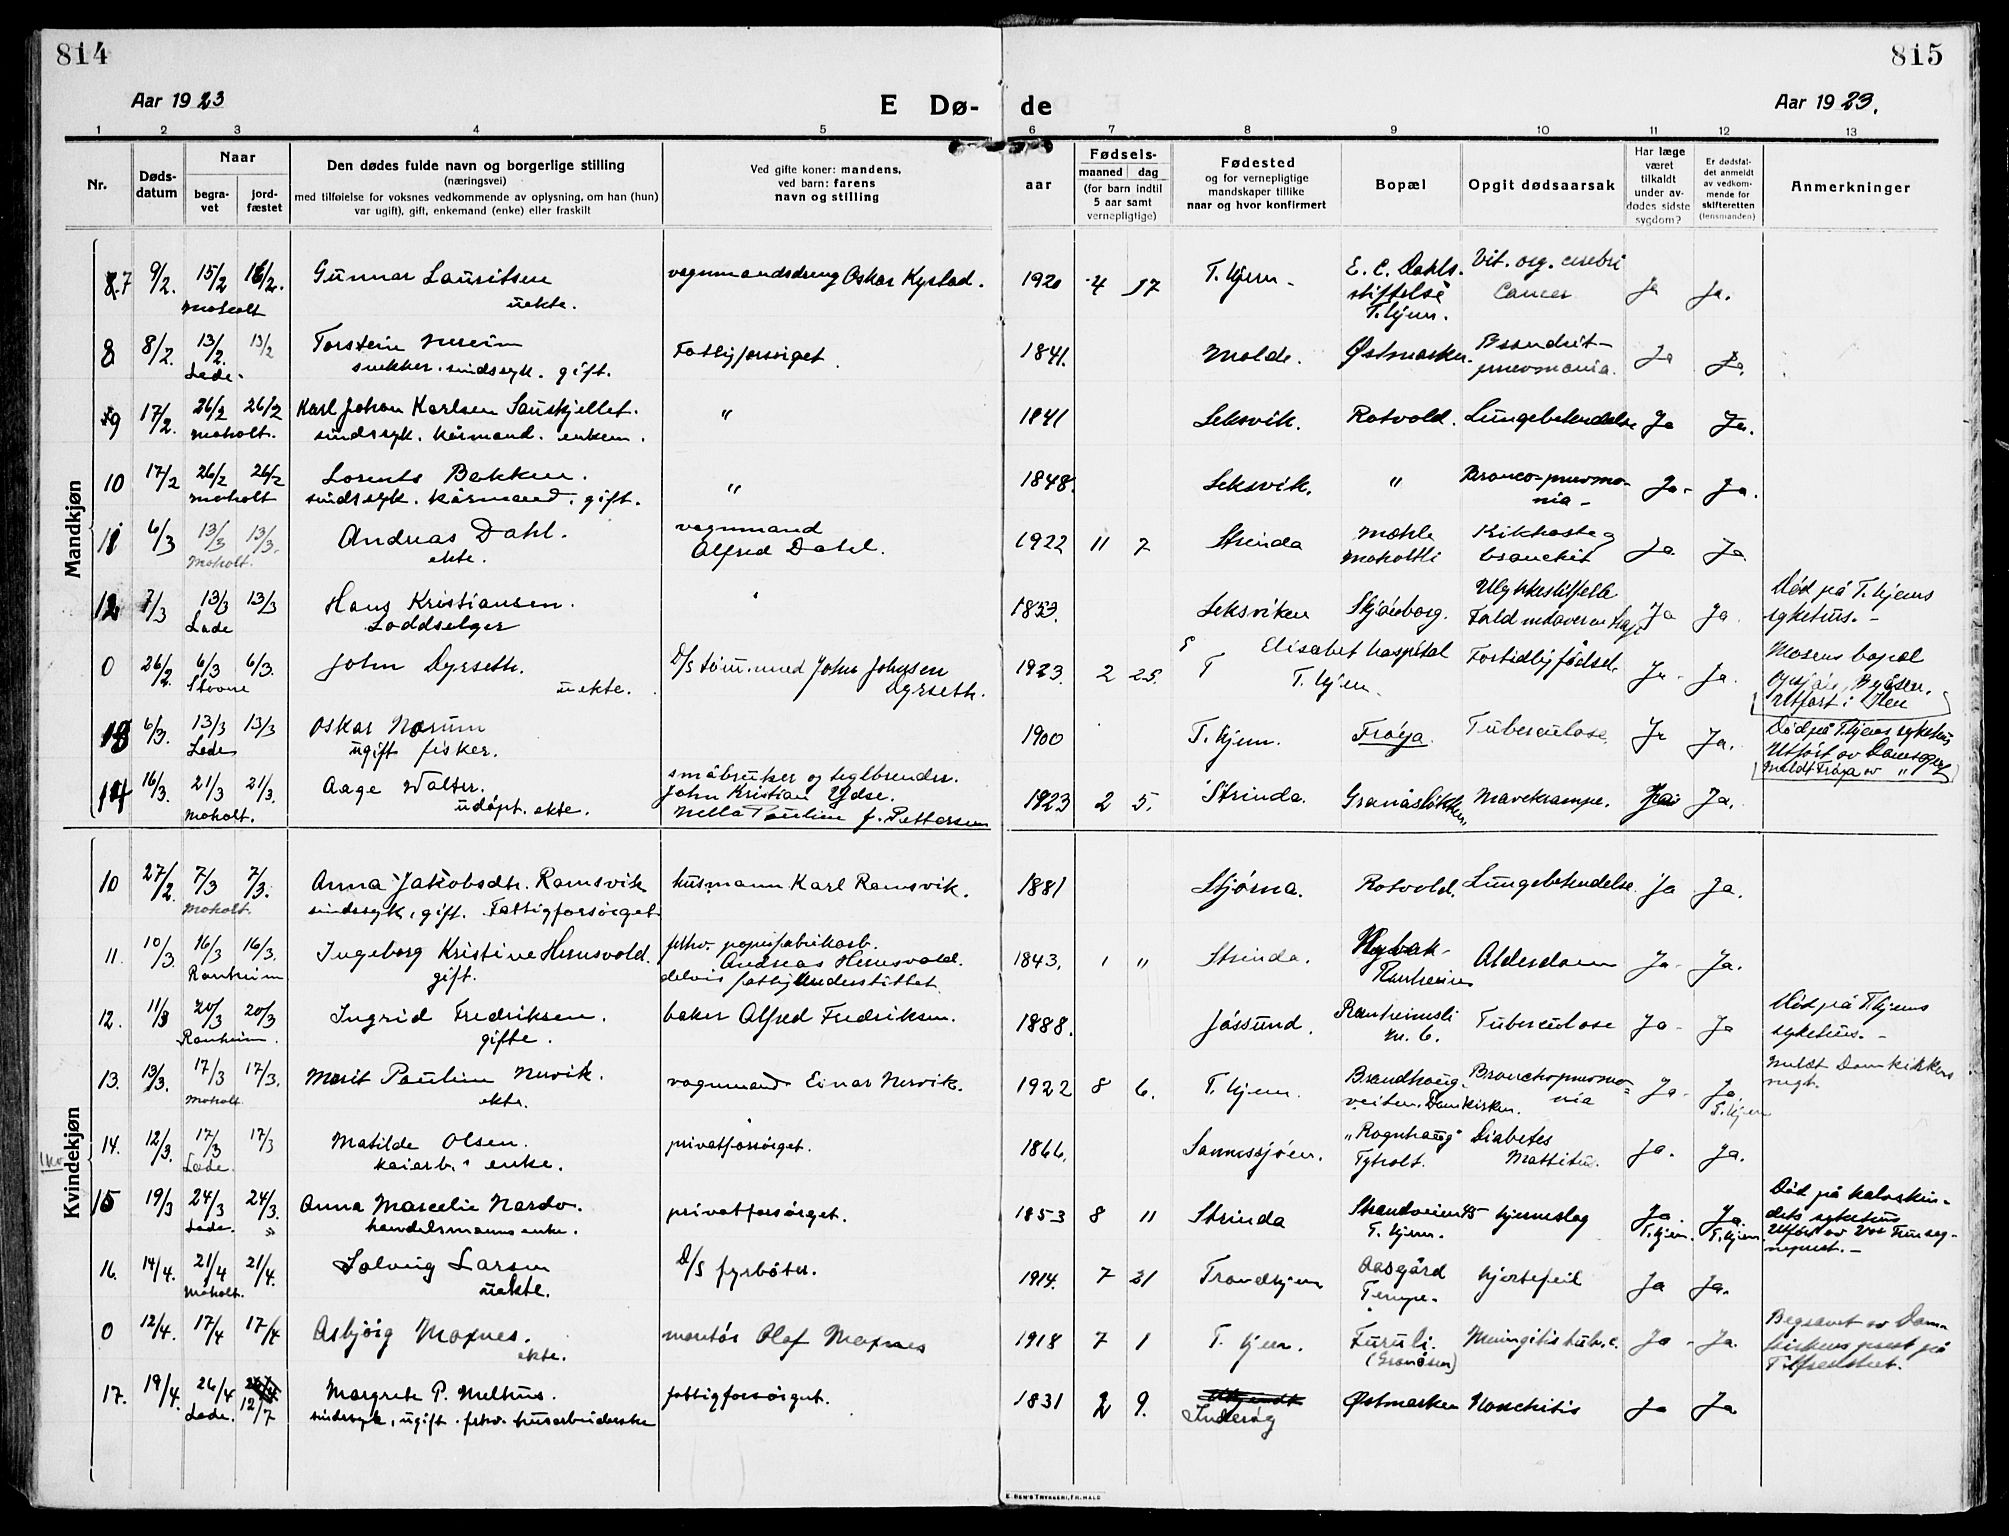 814
815
Aar 1923
E Dø-
de
Aar 1923.
1 2 3 4 5 6 7 8 9 10 11 12 13
Nr.
Døds-
datum
Naar
begra-
vet
jord-
fæstet
Den dødes fulde navn og borgerlige stilling
(næringsvei)
med tilføielse for voksnes vedkommende av oplysning, om han (hun)
var ugift), gift, enkemand (enke) eller fraskilt
Ved gifte koner: mandens,
ved barn: farens
navn og stilling
Fødsels-
aar
maaned dag
(for barn indtil
5 aar samt
vernepligtige)
Fødested
og for vernepligtige
mandskaper tillike
naar og hvor konfirmert
Bopæl
Opgit dødsaarsak
Har læge
været
tilkaldt
under av-
dødes sidste
sygdom?
Er dødsfal-
det anmeldt
av vedkom-
mende for
skifteretten
(lensmanden)
Anmerkninger
Mandkjøn
7 9/2. 15/2 16/2. Gunnar Lauritsen vognmandsdreng Oskar Kystad. 1920 4 17 T.hjem E. C. Dahls. Vit. org. cerebri Ja Ja.
Moholt uekte. stiftelse Cancer
T.hjem.
8 8/2. 13/2. 13/2 Torstein Nereim Fattigforsørget 1841. Molde. Østmarken. Ja Ja.
Lade. snekker. sindssyk. gift. pneumonia.
9 17/2. 26/2 26/2 Karl Johan Karlsen " 1841 Leksvik. Rotvold. Lungebetendelse Ja Ja.
Moholt. sindssyk. kårmand. enkem.
10 17/2 26/2 26/2 Lorents Bakken. " 1848. Leksvik. " Bronco-pneumo- Ja- Ja.
Moholt sindssyk. kårmand. gift. nia-
11 6/3 13/3 13/3. Andreas Dahl. vognmand 1922 11 7 Strinda Mohle Kikhoste og Ja Ja
Moholt. ekte. Alfred Dahl. Moholtli bronchit
12 7/3 13/3 13/3 Hans Kristiansen. 1853. Leksviken Skjönborg. Ulykkestilfelle Ja Ja Død på T.hjems
Lade Loddselger sykehus.-
0 26/2. 6/3 6/3. John Dyrseth. D/s tøm.mand John Johnsen 1923. 2 25. Elisabet hospital For tidlig fødsel Ja Ja. Morens bopæl
Stavne uekte. Dyrseth. T.hjem. Byåsen.
Utført i Ilen
13 6/3. 13/3 13/3 Oskar Norum 1900 T.hjem. Frøya. Tuberculose. Ja Ja. Død på T.hjems sykehus
Lade ugift fisker. Utført av
Meldt Frøya av "
14 16/3. 21/3 21/3. Aage Walter. småbruker og teglbrender. 1923 2 5. Strinda. Granåsløkken Mavekrampe. Ja.
Moholt. udøpt. ekte. John Kristian Ydse.
Nella Pauline f. Pettersen
Kvindekjøn
10 27/2 7/3 7/3. Anna Jakobsdtr. Ramsvik husmann Karl Ramsvik. 1881 Stjørna. Rotvold. Lungebetendelse. Ja Ja.
Moholt. sindssyk, gift. Fattigforsørget.
11. 10/3 16/3 16/3. Ingeborg Kristine Hernsvold. fhv. papirfabrikarb. 1843. 1 " Strinda. Alderdom Ja- Ja.
Ranheim gift. Andreas Hernsvold. Ranheim
delvis fattigunderstøttet.
12. 11/3 20/3 20/3 Ingrid Fredriksen. baker Alfred Fredriksen. 1888. Jøssund. Ranheimsli Tuberculose Ja- Ja Død på T.hjems
Ranheim. gifte. m. 6. sykehus.-
13. 13/3. 17/3 17/3. Marit Pauline Nervik. vognmand Einar Nervik. 1922 8 6. T.hjem. Brandhaug- Bronchopneumo- Ja- Ja. Meldt Domkirkens
Moholt ekte. veiten. Domkirken. nia T.hjem
14. 12/3. 17/3 17/3 Matilde Olsen. privatforsørget. 1866. Sannessjøen. "Rognhaug" Diabetes Ja. Ja.
Lade. kaiarb.s enke. Tyholt. Mellitus.
15 19/3 24/3 24/3. Anna Marcelie Nardo. privatforsørget. 1853 8 11 Strinda Strandveien 45 hjerneslag Ja. Ja. Død på kalvskin-
Lade. handelsmanns enke. T.hjem. T.hjem. T.hjem dets sykehus
Utført av Vor Frue sog-
neprest.-
16. 14/4. 21/4 21/4. Solveig Larsen D/s fyrbøter. 1914. 7 21 Trondhjem Aasgård hjertefeil Ja Ja.
Moholt. uekte. Tempe.
0 12/4. 17/4 17/4 Asbjörg Moxnes. montør Olaf Moxnes 1918 7 1 T.hjem. Furuli. Meningitis tuberc. Ja- Ja. Begravet av Dom-
ekte. (Granåsen) kirkens prest på
Tilfredshet.
17. 19/4. 26/4 Margrete P. Melhus. fattigforsørget. 1831 2 9. Inderøy Østmarken Ja Ja
Lade. 12/7 sindssyk, ugift. fhv. husarbeiderske
E. SEM'S TRYKKERI, FR.HALD